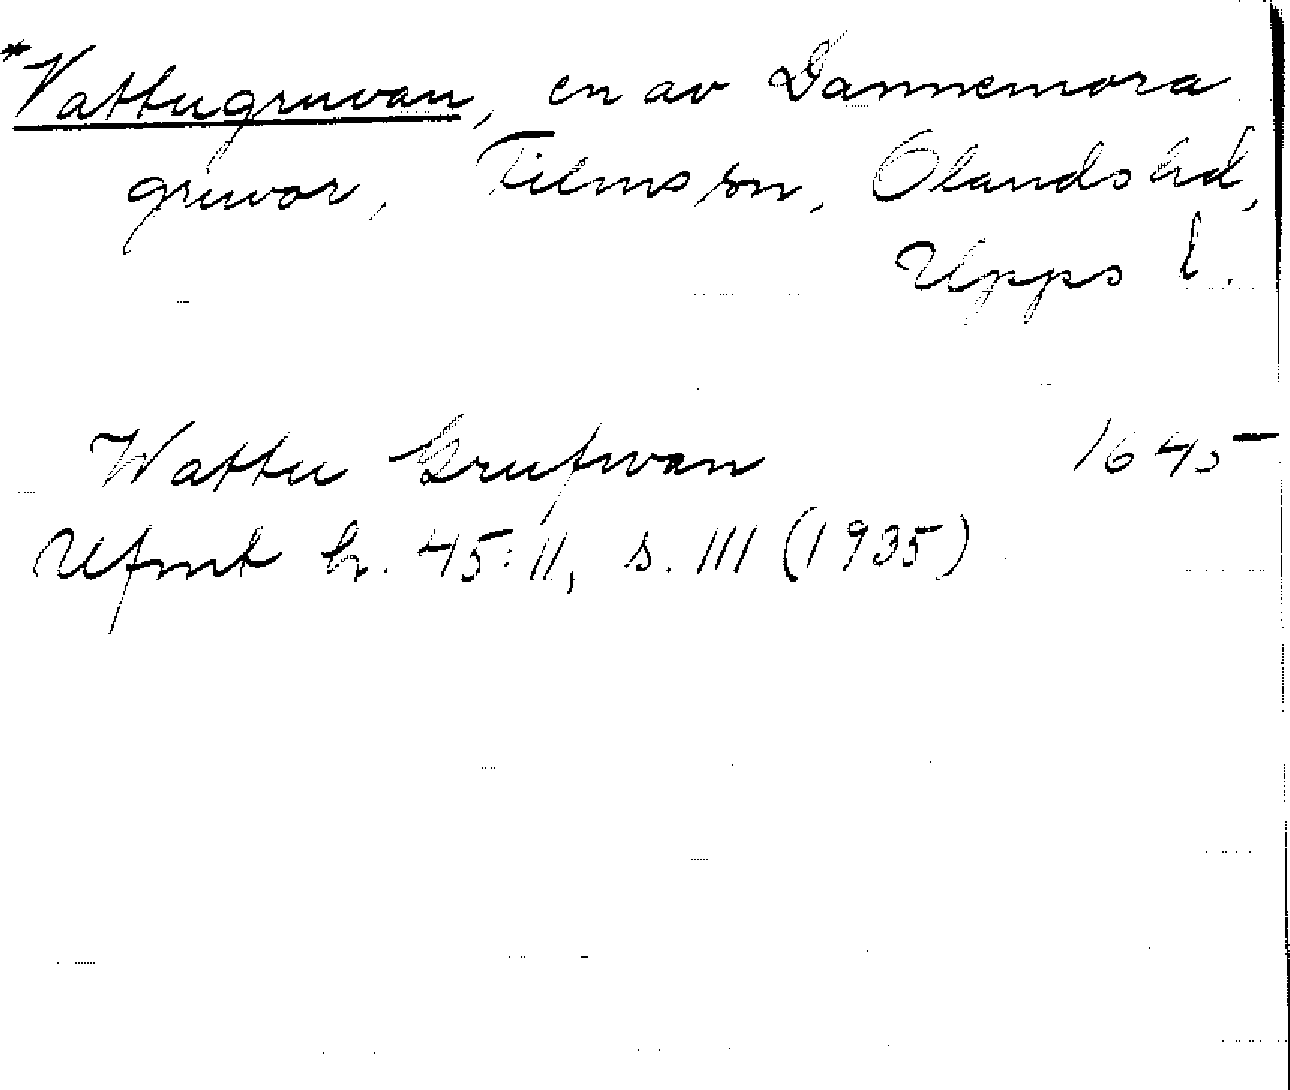 *Vattugruvan, en av Dannemora
gruvor, Films sn, Olands hd,
Upps l.
Wattu Grufwan 1645
Ufmt h. 45:II, s. 111 (1935)